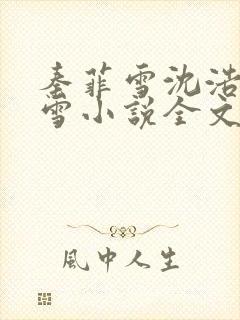 秦菲雪沈浩
雪小説全文
風中人生